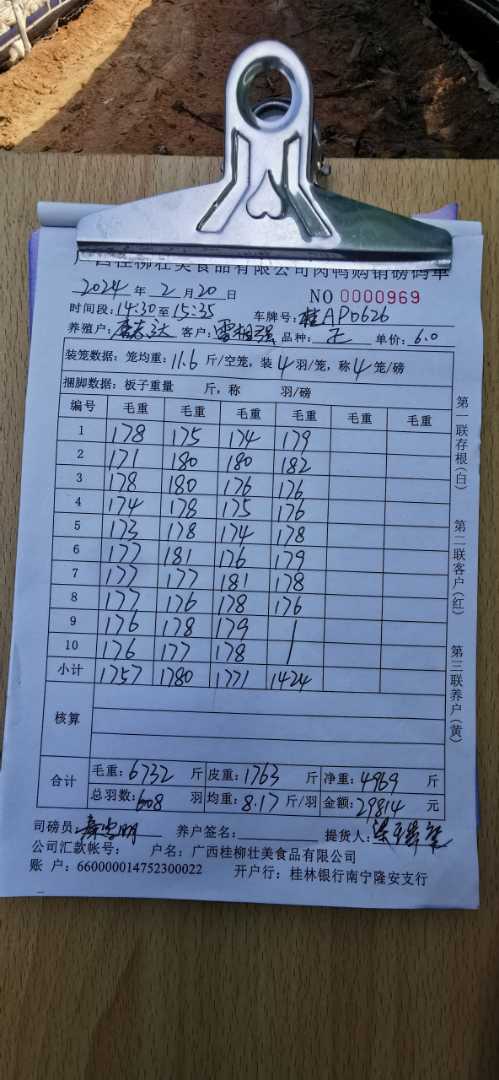 广西桂柳壮美食品有限公司肉鸭购销磅码单
2024年2月20日 NO 0000969
时间段:14:30至15:35 车牌号:桂AP0626
养殖户: 客户:雷祖强 品种: 单价:6.0
装笼数据:笼均重:11.6斤/空笼,装4羽/笼,称4笼/磅
捆脚数据:板子重量 斤,称 羽/磅
编号 毛重 毛重 毛重 毛重 毛重 毛重
1 178 175 174 179
2 171 180 180 182
3 178 180 176 176
4 174 178 175 176
5 173 178 174 178
6 177 181 176 179
7 177 177 181 178
8 177 176 178 176
9 176 178 179 /
10 176 177 178 /
小计 1757 1780 1771 1424
核算
合计 毛重:6732斤 皮重:1763斤 净重:4969斤
总羽数:608羽 均重:8.17斤/羽 金额:29814元
司磅员: 养户签名: 提货人:
公司汇款帐号: 户名:广西桂柳壮美食品有限公司
账 户:660000014752300022 开户行:桂林银行南宁隆安支行
第一联存根(白)
第二联客户(红)
第三联养户(黄)